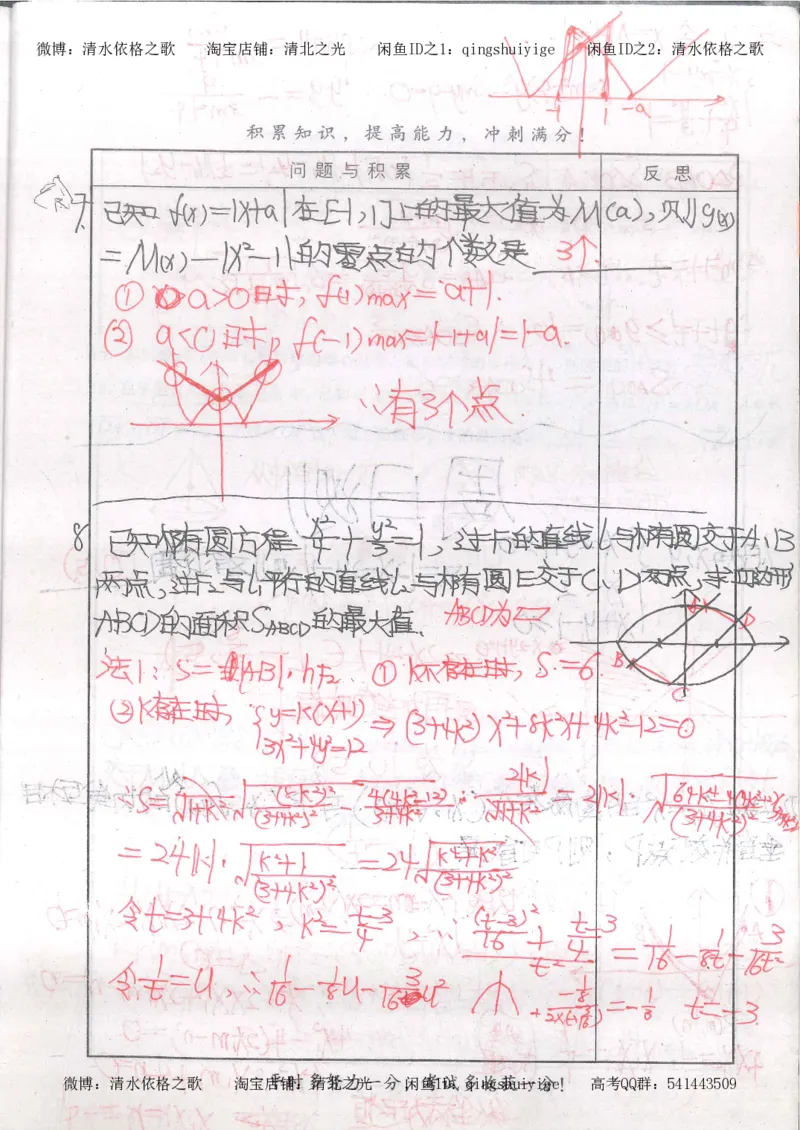 微博：清水依格之歌 淘宝店铺：清北之光 闲鱼ID之1：qingshuiyige 闲鱼ID之2：清水依格之歌
-1 1 -a
积累知识，提高能力，冲刺满分！
问题与积累 反思
7. 已知 f(x)=|x+a|在[-1,1]上的最大值为M(a)，则g(x)
=M(x)-|x²-1|的零点的个数是 3个.
① a>0时，f(1)max=a+1.
② a<0时，f(-1)max=|-1+a|=1-a.
∴有3个点.
8 已知椭圆方程 x²/4+y²/3=1，过F₁的直线l₁与椭圆交于A、B
两点，过F₂与l₁平行的直线l₂与椭圆E交于C、D两点，求四边形
ABCD的面积S_ABCD的最大值. ABCD为▱
A D
B C
法1：S=|AB|·h ① k不存在时，S=6.
② k存在时，{y=k(x+1) 3x²+4y²=12 ⇒ (3+4k²)x²+8k²x+4k²-12=0
=24|k|·√((k²+1)/(3+4k²)²) =24√((k⁴+k²)/(3+4k²)²)
令t=3+4k²，k²=(t-3)/4，∴ ((t-3)²/16+(t-3)/4)/t² =1/16-1/8t-3/16t²
令1/t=u，∴1/16-1/8u-3/16u²
微博：清水依格之歌 淘宝店铺：清北之光 闲鱼ID：qingshuiyige 高考QQ群：541443509